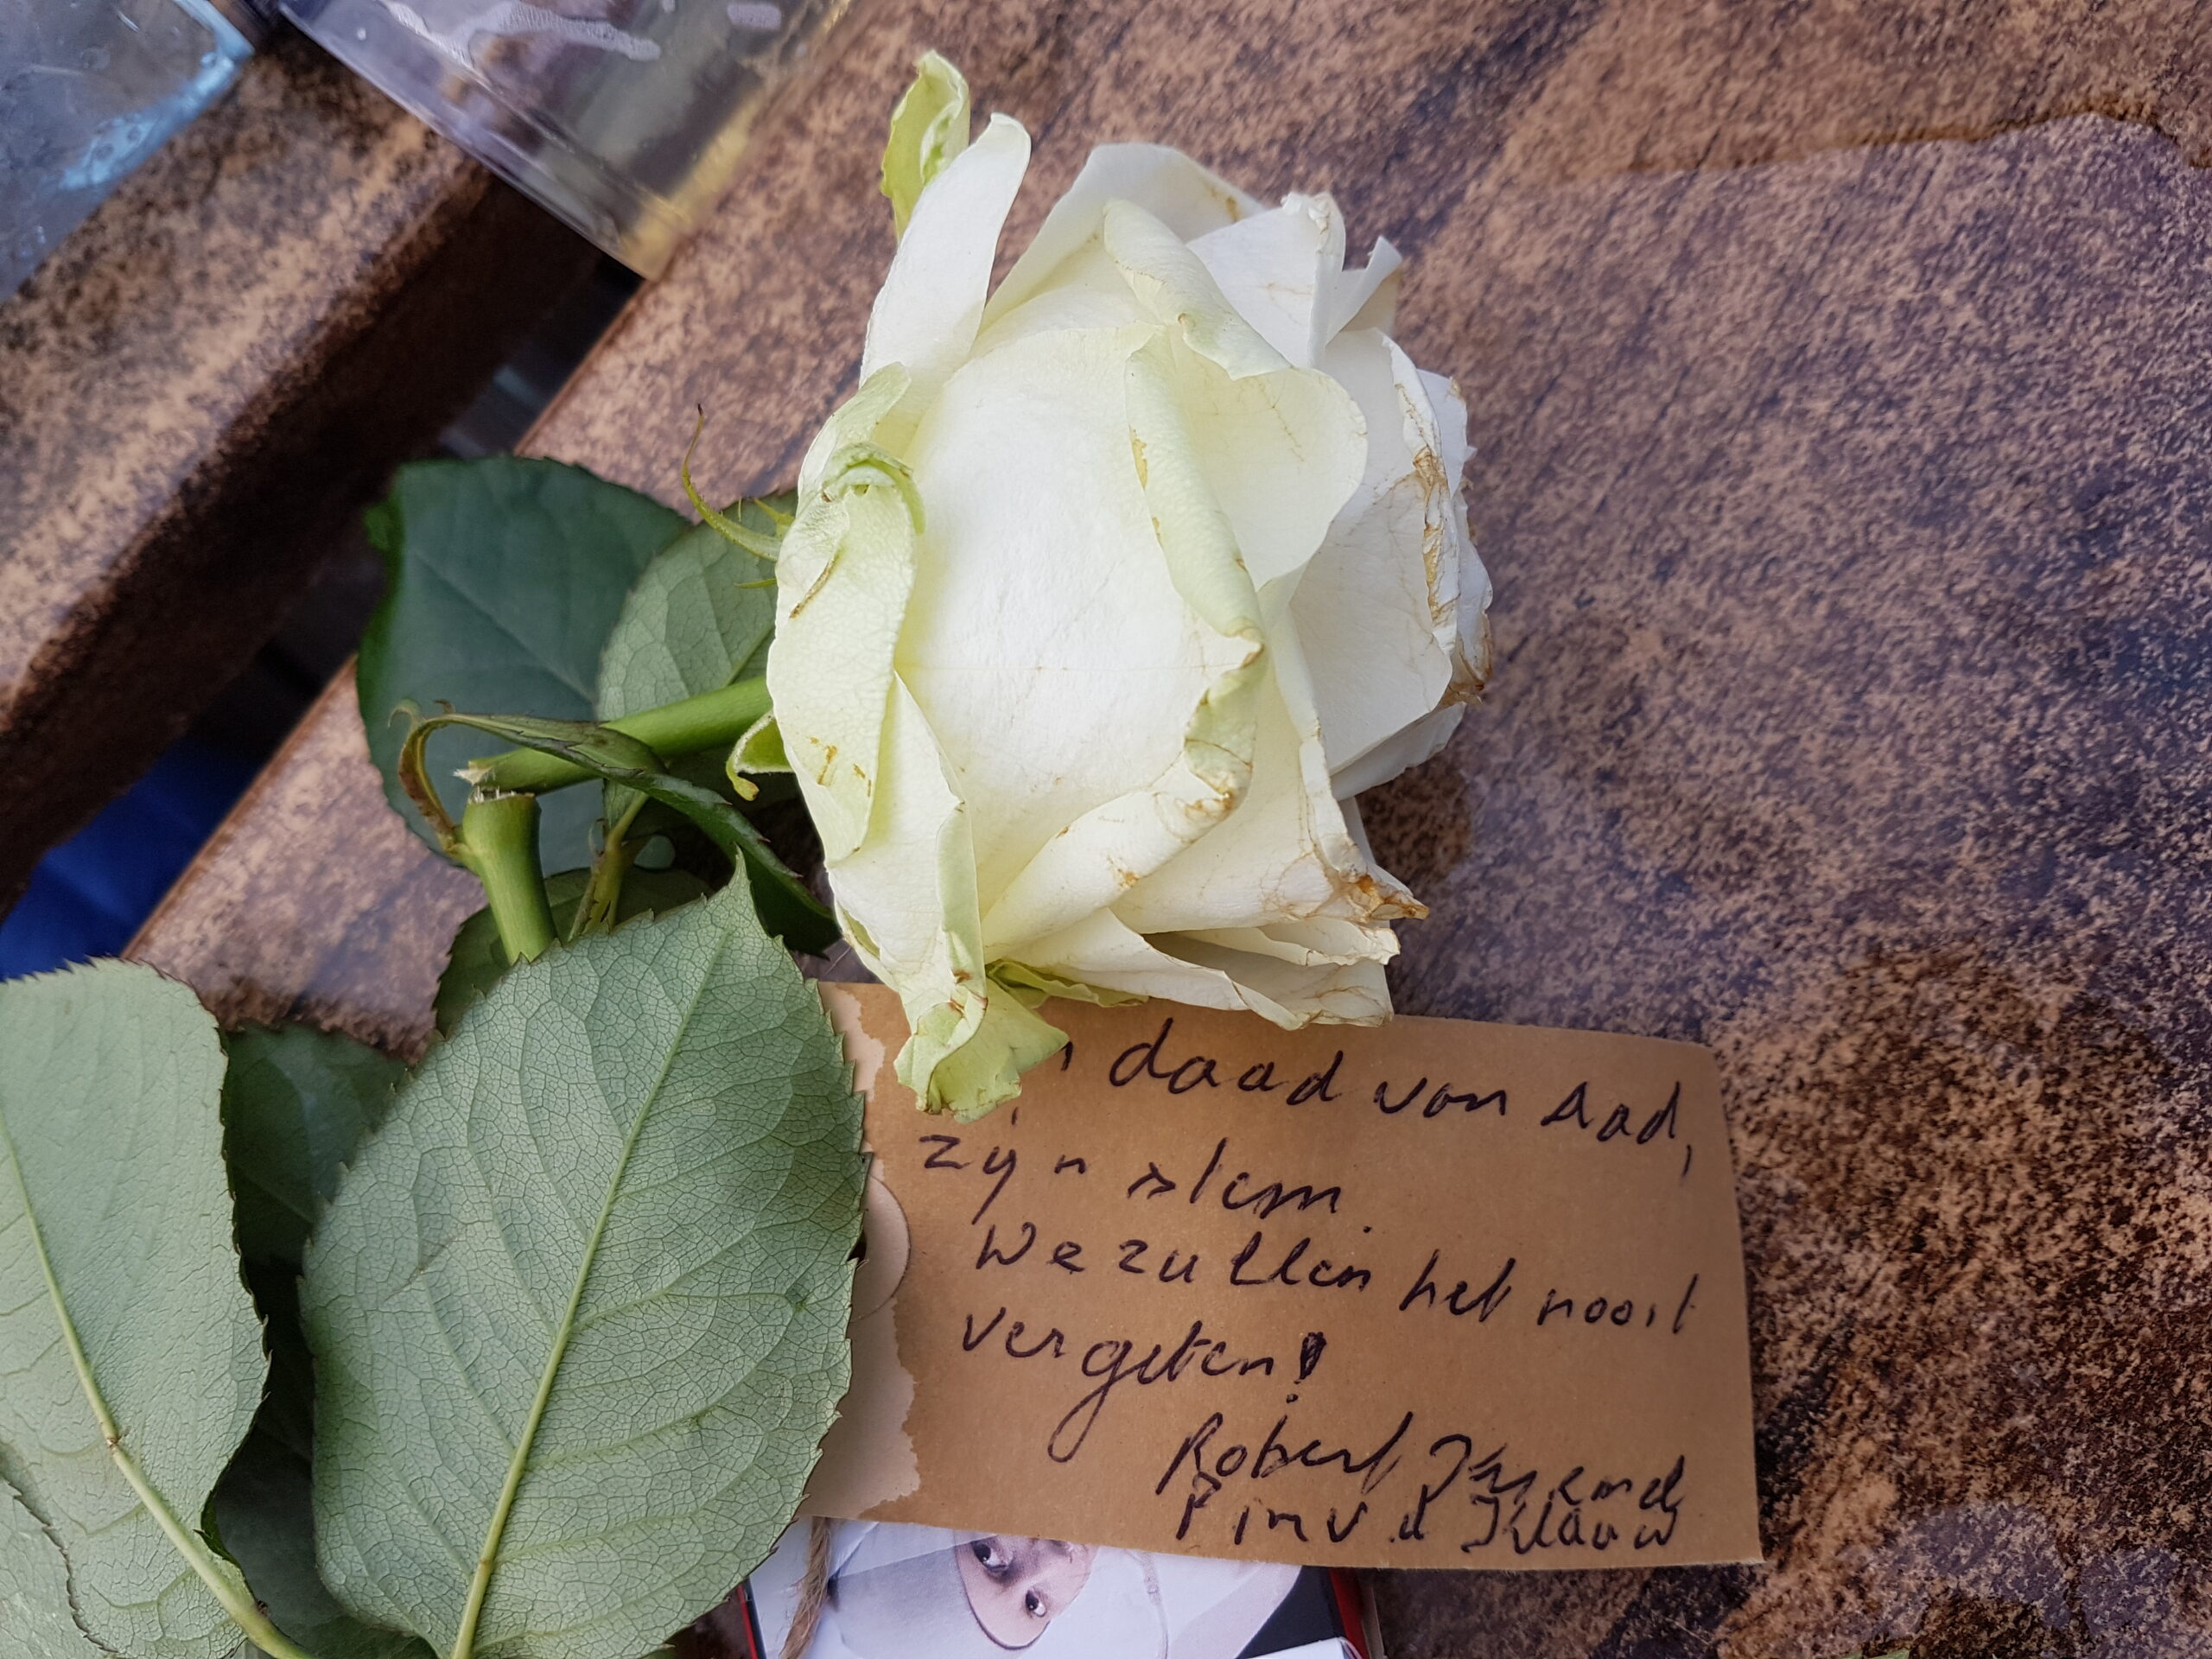 daad van Aad,
zijn stem.
We zullen het nooit
vergeten!
Robert
Pim v d